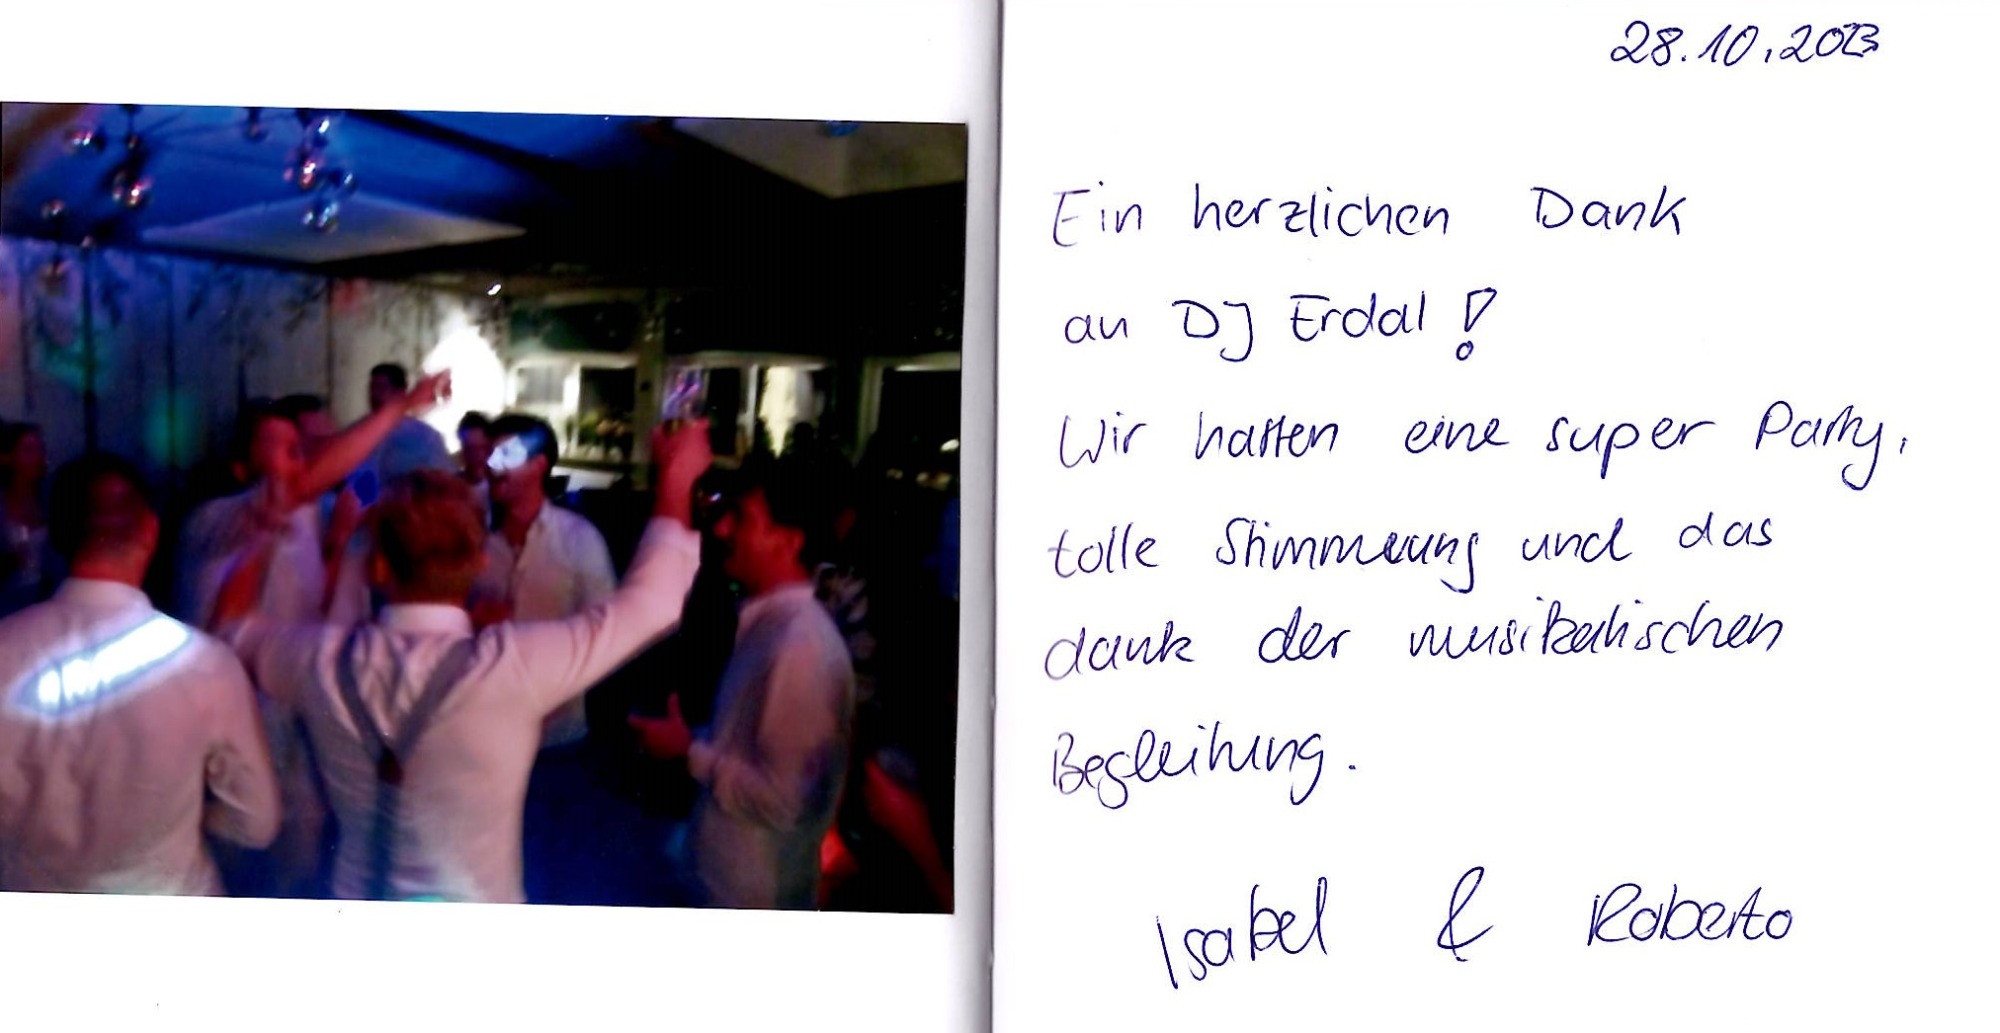 28.10.2023
Ein herzlichen Dank
an DJ Erdal!
Wir hatten eine super Party,
tolle Stimmung und das
dank der musikalischen
Begleitung.
Isabel & Roberto